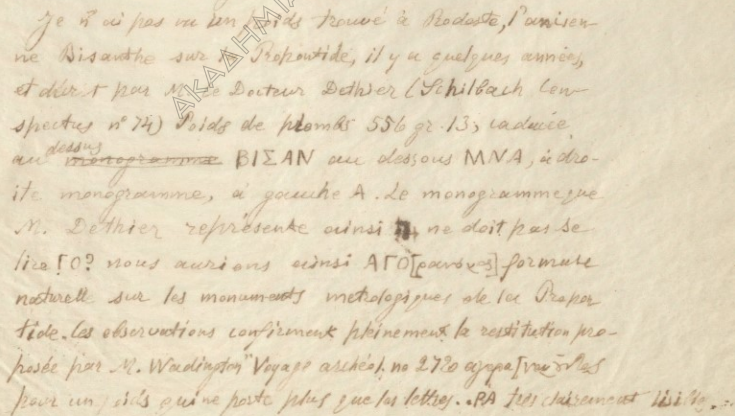 Je n'ai pas vu un poids trouvé à Rodosto, l'ancien-
ne Bisanthe sur la Propontide, il y a quelques années,
et décrit par M. le Docteur Dethier (Schilbach Con-
spectus nº 74) Poids de plombs 556 gr. 13, caducée
au dessus monogramme ΒΙΣΑΝ au dessous ΜΝΑ, à dro-
ite monogramme, à gauche Α. Le monogramme que
M. Dethier représente ainsi ne doit pas se
lire ΓΟ? nous aurions ainsi ΑΓΟ[ρανόμος] formule
naturell sur les monuments métrologiques de la Propon
tide. Les observations confirment pleinement la restitution pro-
posée par M. Wadington "Voyage archéol. no 2720 αγορα[νομοῦντος
pour un poids qui ne porte plus que les lettres..ΡΑ très clairement lisible.
ΑΚΑΔΗΜΙΑ